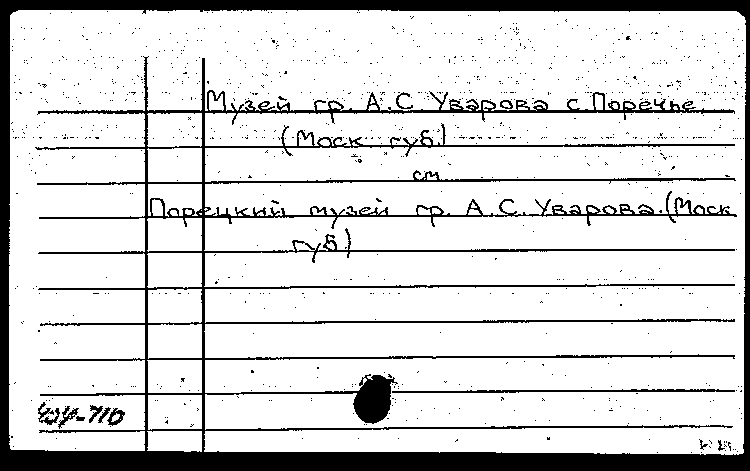 Музей гр. А.С Уварова с. Поречье
(Моск. губ.)
см
Порецкий музей гр. А.С. Уварова. (Моск
губ)